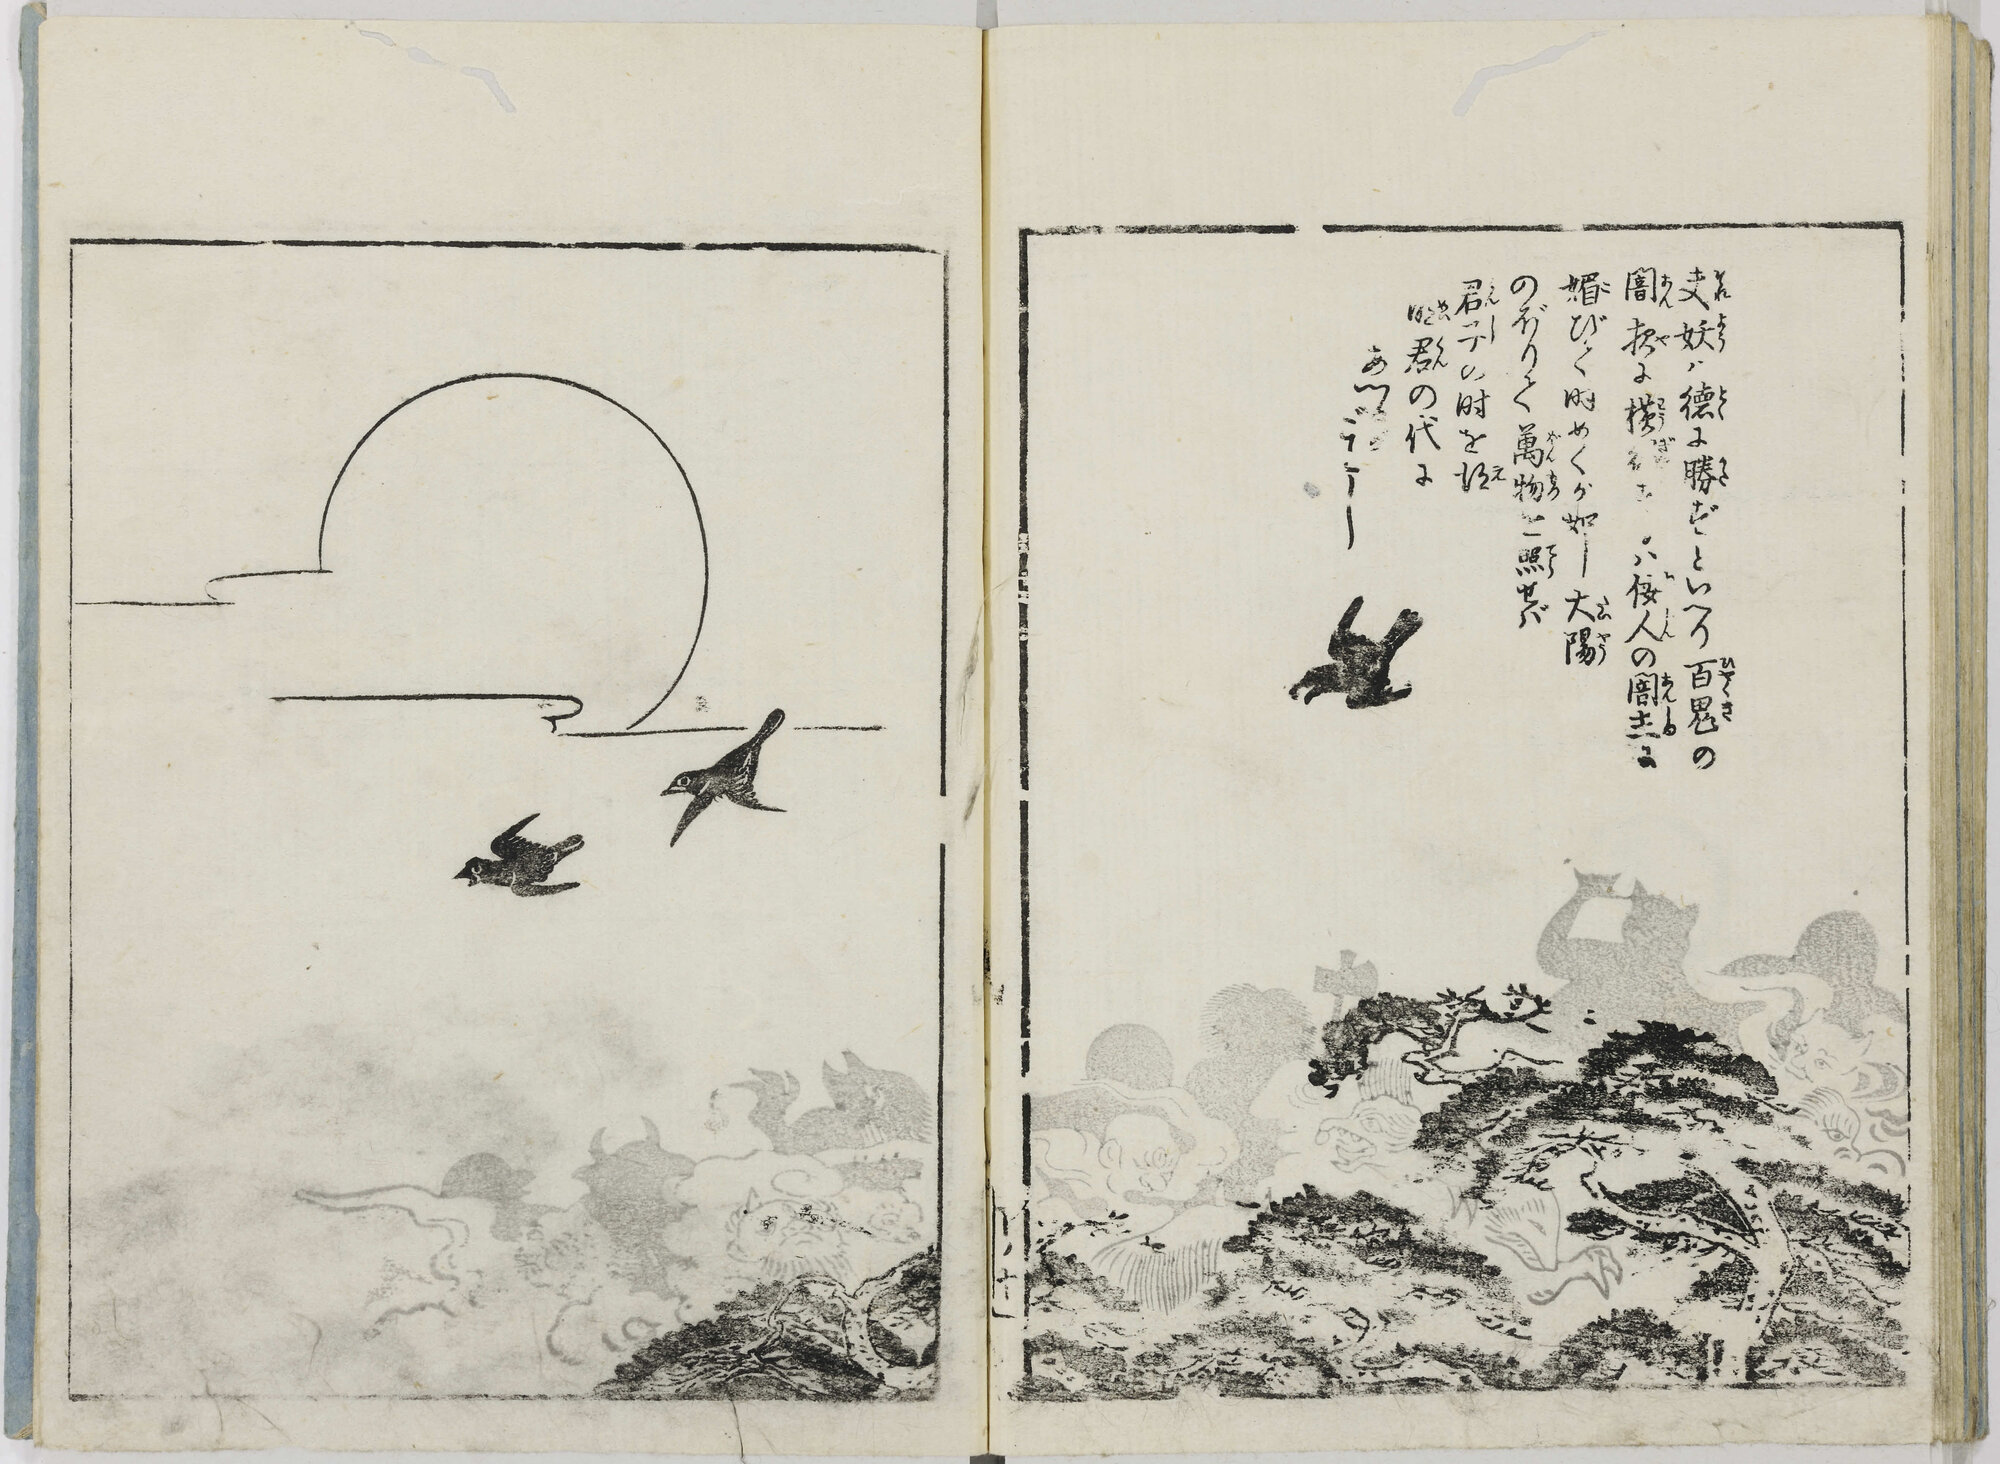 夫妖ハ徳に勝ずといへり百鬼の
闇夜に横行するハ佞人の闇主に
媚びて時めくが如し大陽
のぼりて萬物を照せば
君子の時を得
明君の代に
あへるがごとし